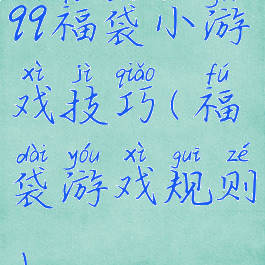 99福袋小游
xì jì qiǎo fú
戏技巧(福
dài yóu xì guī zé
袋游戏规则
)